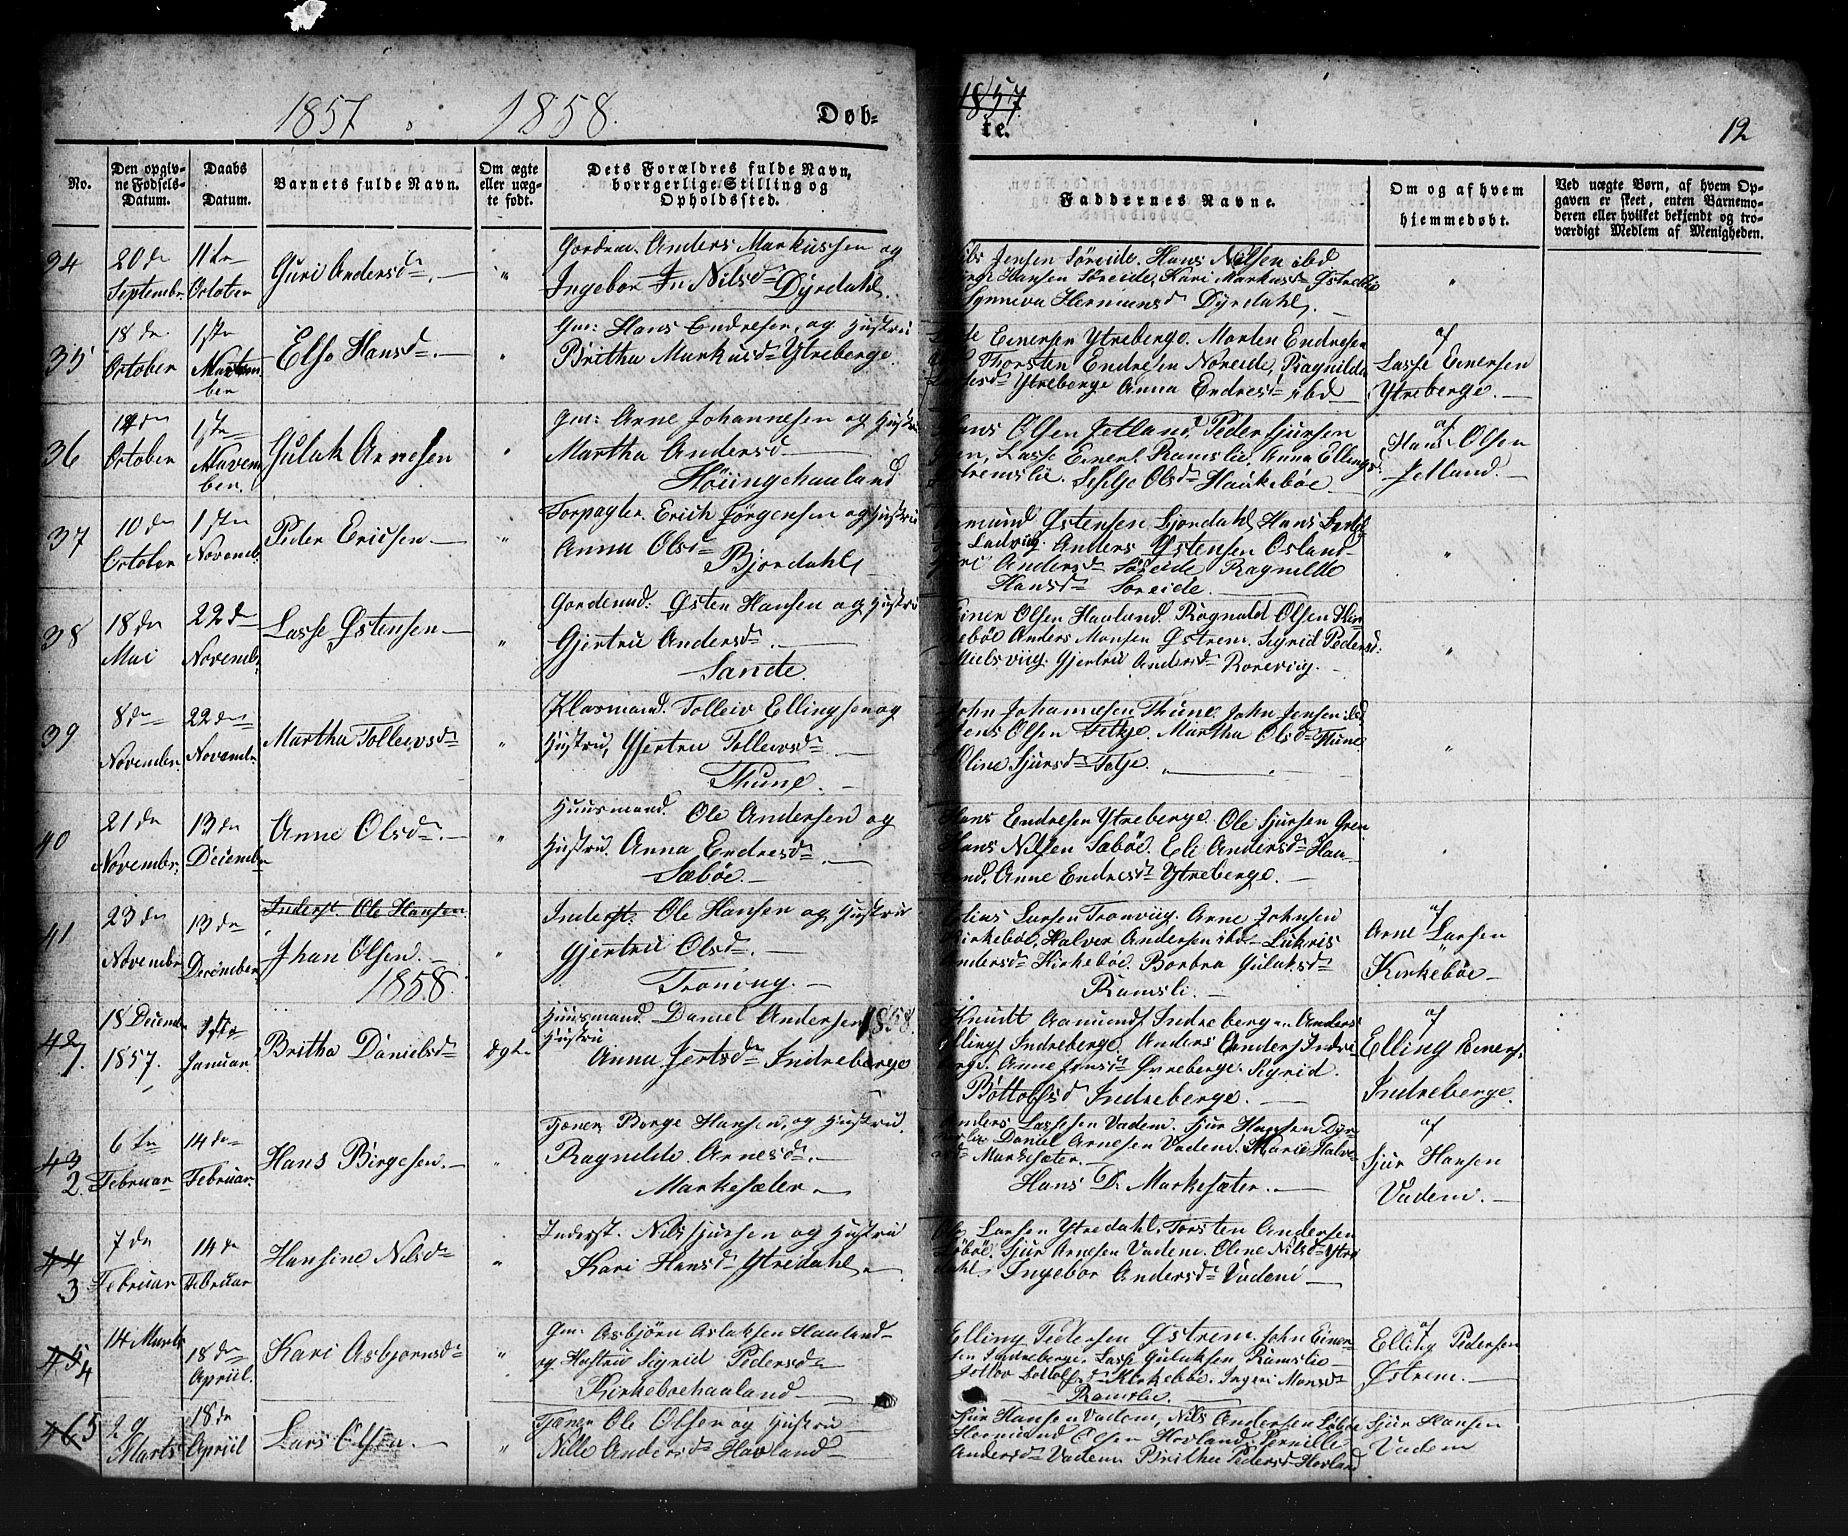 1857 1858. Døb-
1857
te. 12
No.
Den opgiv-
ne Fødsels-
Datum.
Daabs
Datum.
Barnets fulde Navn.
Om ægte
eller uæg-
te født.
Dets Forældres fulde Navn,
borgerlige Stilling og
Opholdssted.
Faddernes Navne.
Om og af hvem
hjemmedøbt.
Ved uægte Børn, af hvem Op-
gaven er skeet, enten Barnemo-
deren eller hvilket bekjendt og tro-
værdigt Medlem af Menigheden.
34
20de
Septembr.
11te
October
Guri Andersd.
Gordm. Anders Markussen og
Ingebor Nilsd Dyrdahl.
Jensen Söreide. Hans Nilsen ibd
Hansen Söreide, Kari Markusd
Synneva Hermunsd Dyrdahl
35
18de
October
1ste
Novem-
ber
Else Hansd.
Gm: Hans Endresen, og Hustru
Britha Markusd Ytreberge.
Einersen Ytreberge. Morten Endresen
Thorsten Endresen Noreide, Ragnilda
Ytreberge Anna Endresd ibd
af
Lasse Einersen
Ytreberge.
36
October
1ste
Novem-
ber.
Guluk Arnesen
Gm: Arne Johannesen og Hustru
Martha Andersd
Höiungehaaland
Olsen Jetland. Peder Sjursen
Lasse Einers. Ramslie, Anna Ellingsd
Selje Olsd Haukeböe
af
Hans Olsen
Jetland.
37
10de
October
1ste
Novemb.
Peder Ericsen.
Torpagter. Erich Jörgensen og Hustru
Anna Olsd
Bjordahl
Østensen Bjordahl, Hans
Ludvig. Anders Østensen Osland
Andersd Söreide Ragnilde
Hansd Soreide.
38
18de
Mai
22de
Novembr.
Lasse Østensen
Gordmd: Østen Hansen og Hustru
Gjertru Andersd.
Sande.
Einer Olsen Haaland. Ragnald Olsen
Anders Monsen Østrem. Sigrid Pedersd:
Gjertru Andersd Rorevüg.
39
8de
Novembr.
22de
Novembr.
Martha Tolleivsd
Tolleiv Ellingsen og
Hustru, Gjertru Tolleivsd.
Thune.
John Johannesen Thune. John Jensen ibd
Jens Olsen Fetje. Martha Olsd Thune
Oline Sjursd Fetje.
40
21de
Novembr.
13de
Decembr
Anne Olsd.
Huusmand. Ole Andersen og
Hustru. Anna Endresd
Sæböe.
Hans Endresen Ytreberge. Ole Sjursen
Hans Nilsen Sæböe. Eli Andersd Haa-
land. Anne Endresd Ytreberge.
41
23de
Novembr
13de
December
Inderst. Ole Hansen
Johan Olsen.
1858.
Inderst. Ole Hansen og Hustru
Gjertru Olsd.
Larsen Tronvüg. Arne Johnsen
Kirkeböe, Halvor Andersen ibd
Andersd Kirkeböe. Borbra Guluksd
Ramsli.
af
Arne Larsen
Kirkeböe
42
1.
18 Decembr
1857.
1ste
Januar
Britha Danielsd
Huusmand. Daniel Andersen 1858.
Hustru
Anna Indreberge
Knudt Aamunds. Indreberge. Anders
Ellings Indreberge. Anders Anders Indre-
berge. Anne Jensd Øvreberge. Sigrid
Bottolfsd Indreberge.
af
Elling Einers.
Indreberge.
43
2.
6te
Februar
14de
Februar.
Hans Birgesen.
Tjener Borge Hansen, og Hustru.
Ragnilde Arnesd.
Markesæter.
Anders Lassesen Vadem. Sjur Hansen Dyr-
Daniel Arnesen Vadem. Marie Halvo-
Markesæter.
Hans D. Markesæter.
af
Sjur Hansen
Vadem.
44
3
7de
Februar
14de
Februar
Hansine Nilsd
Inderst. Nils Sjursen og Hustru
Kari Hansd Ytredahl.
Larsen Ytredahl. Torsten Andersen
Sjur Arnesen Vadem. Oline Nilsd Ytre
dahl. Ingebor Andersd Vadem
45
4
14 Marts
18de
Apriil.
Kari Asbjornsd
Gm: Asbjörn Aslaksen Haaland
og Hustru Sigrid Pedersd
Kirkeboehaaland
Elling Pedersen Østrem. John Einer-
sen Indreberge. Lasse Guluksen Ramslie
Kirkeböe. Ingeri Monsd
Ramslie
af
Elling Pedersen
Østrem.
46
5
29
Marts
18de
Apriil
Lars Olsen.
Tjener Ole Olsen og Hustru
Nille Andersd Hovland
Sjur Hansen Vadem, Nils Andersen
Olsen Hovland. Pernille
Andersd Vadem Britha Pedersd Hovland
Sjur Hansen
Vadem